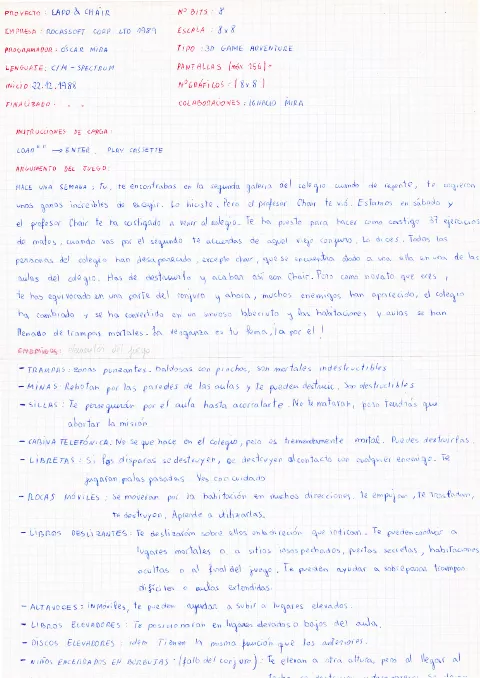 PROYECTO: LAPO & CHAIR
Nº BITS: 8
EMPRESA: ROCASSOFT CORP LTD 1989
ESCALA: 8x8
PROGRAMADOR: OSCAR MIRA
TIPO: 3D GAME ADVENTURE
LENGUAJE: C/M - SPECTRUM
PANTALLAS (MÁX. 256)-
INICIO 22.12.1988
NºGRÁFICOS - (8x8)
FINALIZADO: . .
COLABORACIONES: IGNACIO MIRA
INSTRUCCIONES DE CARGA:
LOAD"" → ENTER. PLAY CASSETTE
ARGUMENTO DEL JUEGO:
HACE UNA SEMANA: Tu, te encontrabas en la segunda galeria del colegio cuando de repente, te cogieron
unas ganas increibles de Lo hiciste. Pero el profesor Chair te vió. Estamos en sábado y
el profesor Chair te ha castigado a venir al colegio. Te ha puesto para hacer como castigo 37 ejercicios
de mates, cuando vas por el segundo te acuerdas de aquel viejo conjuro. Lo dices. Todas las
personas del colegio han desaparecido, excepto chair, que se encuentra atado a una silla en una de las
aulas del colegio. Has de destruirlo y acabar así con Chair. Pero como novato que eres,
te has equivocado en una parte del conjuro y ahora, muchos enemigos han aparecido, el colegio
ha cambiado y se ha convertido en un laberinto y las habitaciones y aulas se han
llenado de trampas mortales. La venganza es tu lema, ¡a por el!
ENEMIGOS: elementos del juego
- TRAMPAS: zonas punzantes. Baldosas con pinchos, son mortales indestructibles
- MINAS: Rebotan por las paredes de las aulas y te pueden destruir. Son destructibles
- SILLAS: Te perseguirán por el aula hasta acorralarte. No te mataran, pero tendrás que
abortar la misión
- CABINA TELEFÓNICA: No se que hace en el colegio, pero es tremendamente mortal. Puedes destruirlas.
- LIBRETAS: Si las disparas se destruyen, se destruyen al contacto con cualquier enemigo. Te
jugaran malas pasadas Ves con cuidado
- ROCAS MÓVILES: Se moveran por la habitación en muchas direcciones. Te empujan, te trasladan,
te destruyen. Aprende a utilizarlas.
- LIBROS DESLIZANTES: Te deslizarán sobre ellos en la dirección que indican. Te pueden conducir a
lugares mortales o a sitios insospechados, puertas secretas, habitaciones
ocultas o al final del juego. Te pueden ayudar a sobrepasar trampas
difíciles o aulas extendidas.
- ALTAVOCES: Inmoviles, te pueden ayudar a subir a lugares elevados.
- LIBROS ELEVADORES: Te posicionaran en lugares elevados o bajos del aula.
- DISCOS ELEVADORES: idem Tienen la misma función que los anteriores.
- NIÑOS ENCERRADOS EN BURBUJAS: (fallo del conjuro): Te elevan a otra altura, pero al llegar al